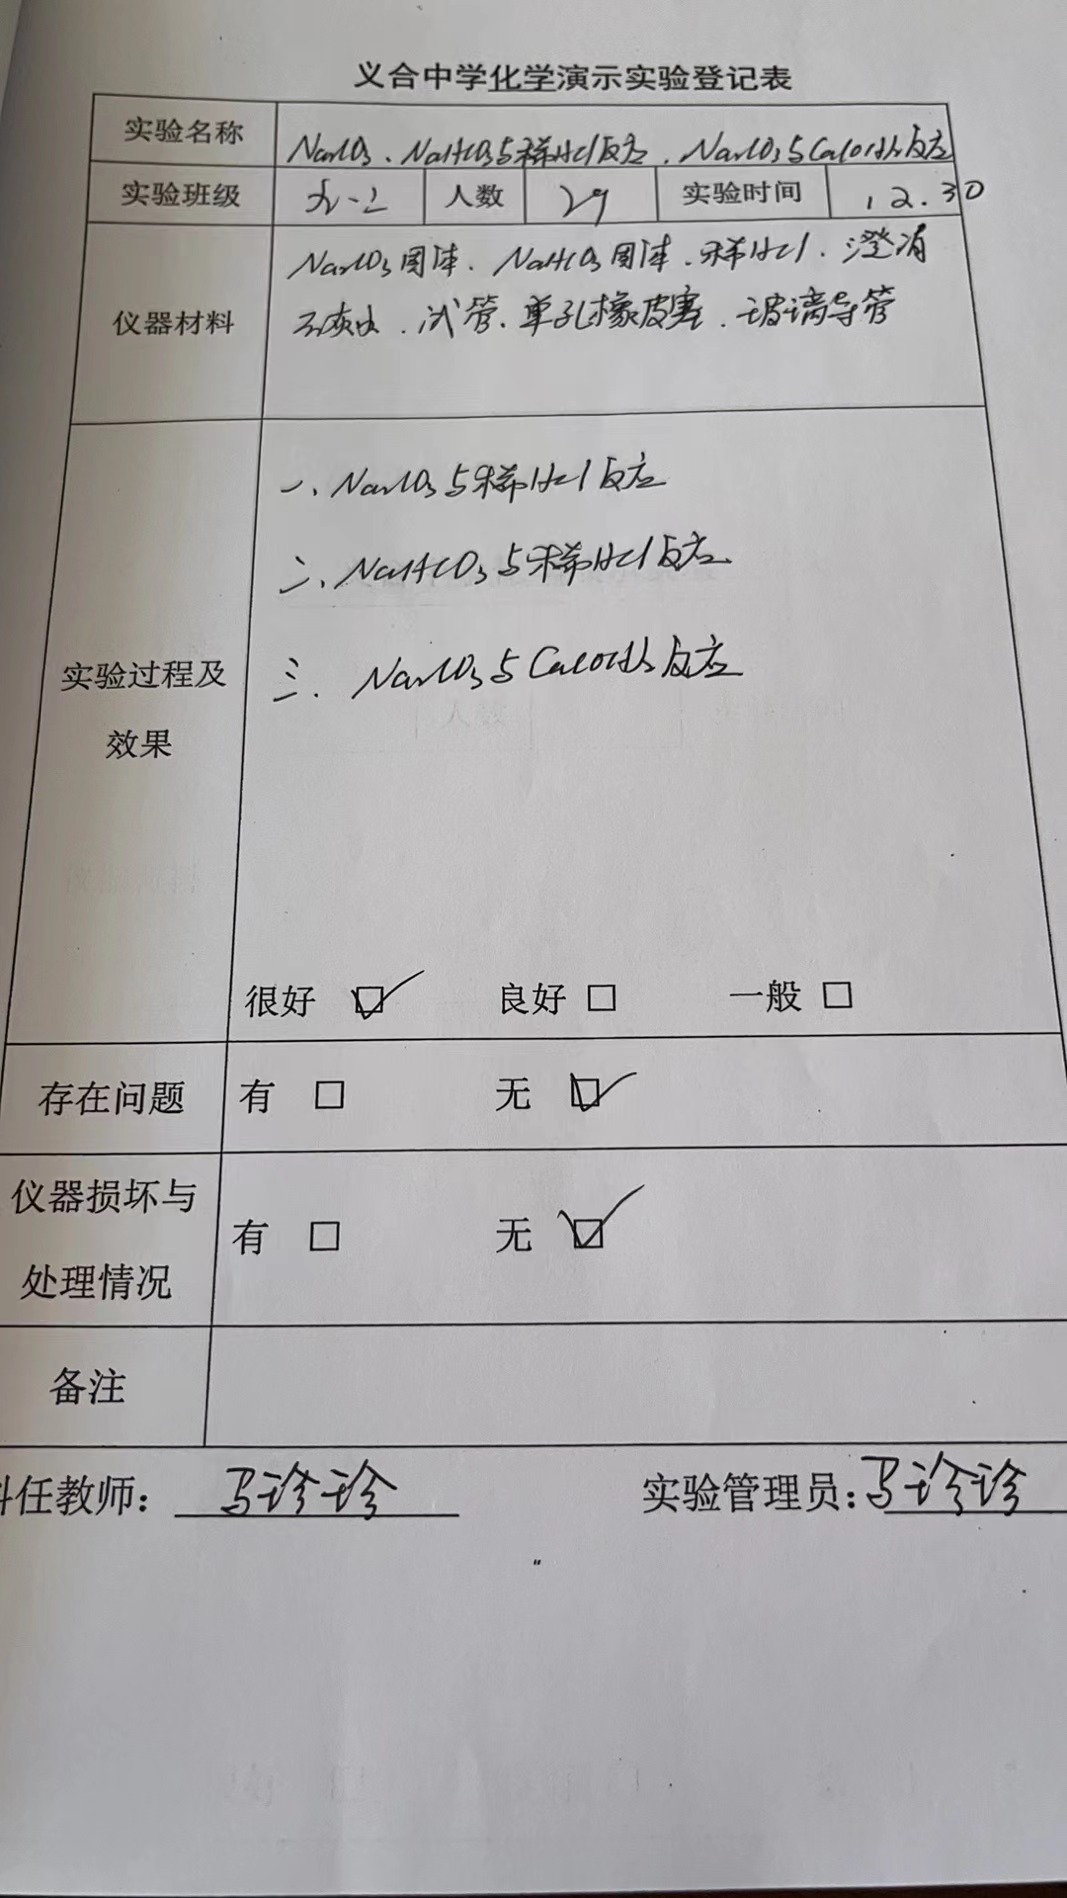 义合中学化学演示实验登记表
实验名称 Na₂CO₃、NaHCO₃与稀HCl反应、Na₂CO₃与Ca(OH)₂反应
实验班级 九-2 人数 29 实验时间 12.30
仪器材料 Na₂CO₃固体、NaHCO₃固体、稀HCl、澄清
石灰水、试管、单孔橡皮塞、玻璃导管
一、Na₂CO₃与稀HCl反应
二、NaHCO₃与稀HCl反应
三、Na₂CO₃与Ca(OH)₂反应
实验过程及
效果
很好 ☑ 良好 □ 一般 □
存在问题 有 □ 无 ☑
仪器损坏与
处理情况
有 □ 无 ☑
备注
科任教师：马诊诊 实验管理员：马诊诊